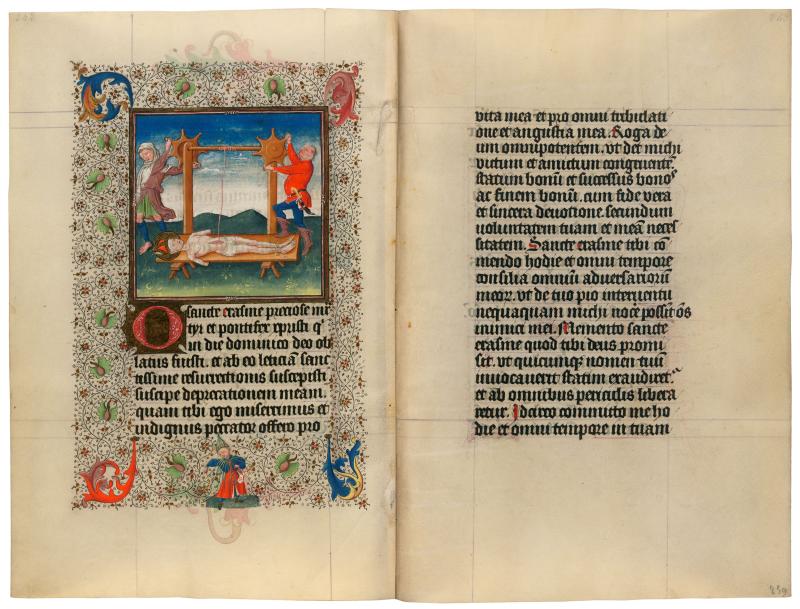 O sancte erasme preciose mar
tyr et pontifex cpristi q̄
in die dominico deo ob
latus fuisti. et ab eo leticiā sanc
tissime resurectionis suscepisti
suscipe deprecationem meam.
quam tibi ego miserrimus et
indignus peccator offero pro
vita mea et pro omni tribulati
one et angustia mea. Roga de
um omnipotentem. vt det michi
victum et amictum congruentē
statum bonū et successus bonos
ac finem bonū. cum fide vera
et sincera deuotione. secundum
voluntatem tuam et meā neces
sitatem. Sancte erasme tibi cō
mendo hodie et omni tempore
consilia omniū aduersariorū
meor. vt de tuo pio interuentu
nequaquam michi nocē possint os
inimici mei. Memento sancte
erasme quod tibi deus promi
sit. vt quicumq; nomen tuū
inuocauerit statim exaudiret.
et ab omnibus periculis libera
retur. Idcirco committo me ho
die et omni tempore in tuam
259